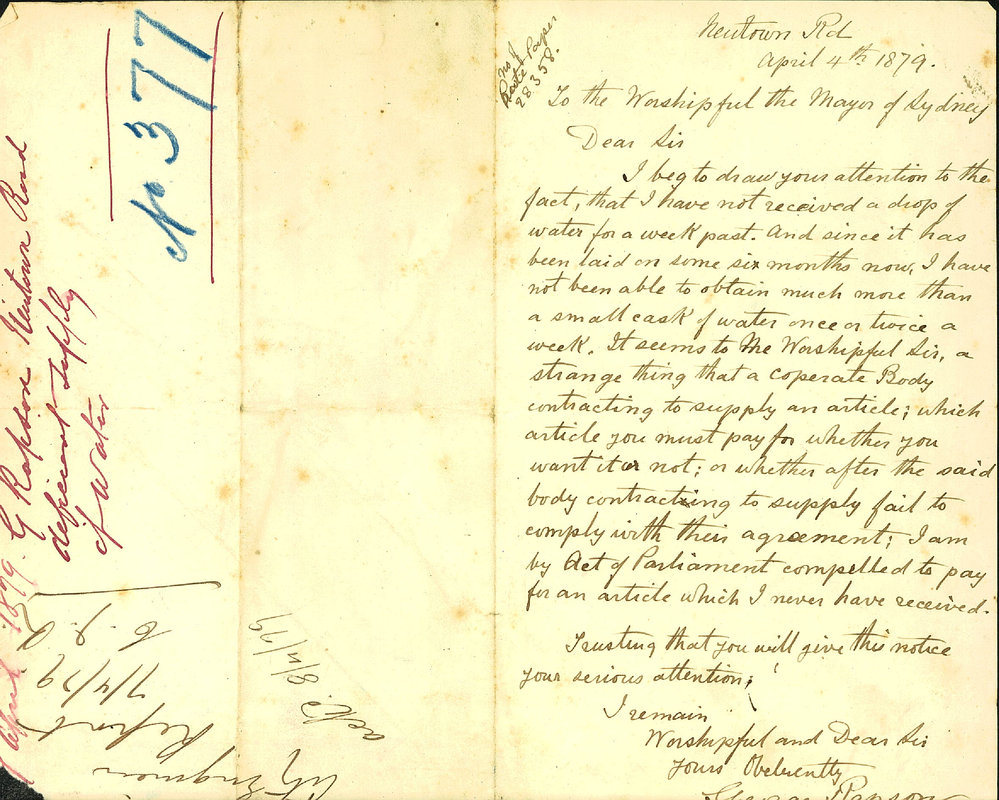 Newtown Rd
April 4th 1879.
No of
Rate Paper
28358.
To the Worshipful the Mayor of Sydney
Dear Sir
I beg to draw your attention to the
fact, that I have not received a drop of
water for a week past. And since it has
been laid on some six months now, I have
not been able to obtain much more than
a small cask of water once or twice a
week. It seems to Me Worshipful Sir, a
strange thing that a coperate Body
contracting to supply an article; which
article you must pay for whether you
want it or not; or whether after the said
body contracting to supply fail to
comply with their agreement; I am
by Act of Parliament compelled to pay
for an article which I never have received.
Trusting that you will give this notice
your serious attention;
I remain
Worshipful and Dear Sir
Yours
George Rapson
No 377
April 1879
G Rapson Newtown Road
deficient supply
of Water
City Engineer
Report
7/4/79
8/4/79